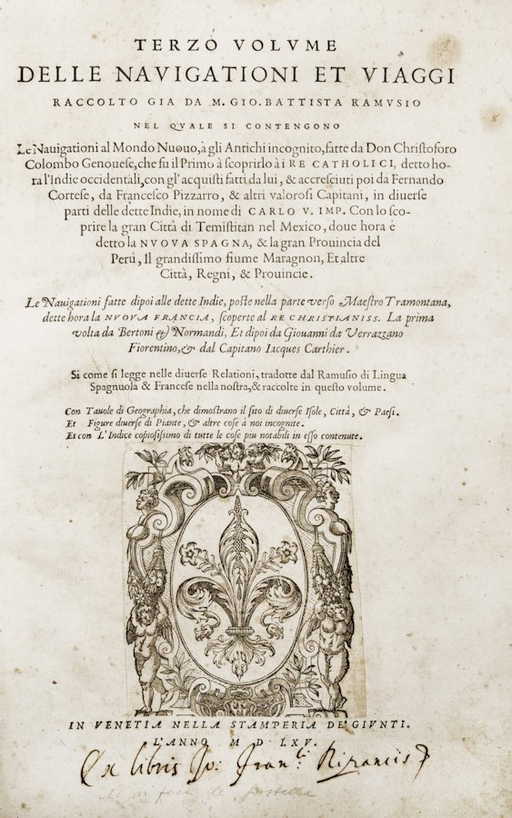 TERZO VOLVME
DELLE NAVIGATIONI ET VIAGGI
RACCOLTO GIA DA M. GIO. BATTISTA RAMVSIO
NEL QVALE SI CONTENGONO
Le Nauigationi al Mondo Nuouo, à gli Antichi incognito, fatte da Don Christoforo
Colombo Genouese, che fu il Primo à scoprirlo à i RE CATHOLICI, detto ho-
ra l'Indie occidentali, con gl'acquisti fatti da lui, & accresciuti poi da Fernando
Cortese, da Francesco Pizzarro, & altri valorosi Capitani, in diuerse
parti delle dette Indie, in nome di CARLO V. IMP. Con lo sco-
prire la gran Città di Temistitan nel Mexico, doue hora è
detto la NVOVA SPAGNA, & la gran Prouincia del
Perù, Il grandissimo fiume Maragnon, Et altre
Città, Regni, & Prouincie.
Le Nauigationi fatte dipoi alle dette Indie, poste nella parte verso Maestro Tramontana,
dette hora la NVOVA FRANCIA, scoperte al RE CHRISTIANISS. La prima
volta da Bertoni & Normandi, Et dipoi da Giouanni da Verrazzano
Fiorentino, & dal Capitano Iacques Carthier.
Si come si legge nelle diuerse Relationi, tradotte dal Ramusio di Lingua
Spagnuola & Francese nella nostra, & raccolte in questo volume.
Con Tauole di Geographia, che dimostrano il sito di diuerse Isole, Città, & Paesi.
Et Figure diuerse di Piante, & altre cose à noi incognite.
Et con L'Indice copiosissimo di tutte le cose piu notabili in esso contenute.
IN VENETIA NELLA STAMPERIA DE' GIVNTI.
L'ANNO M D LXV.
Ex libris Jo: Fran: